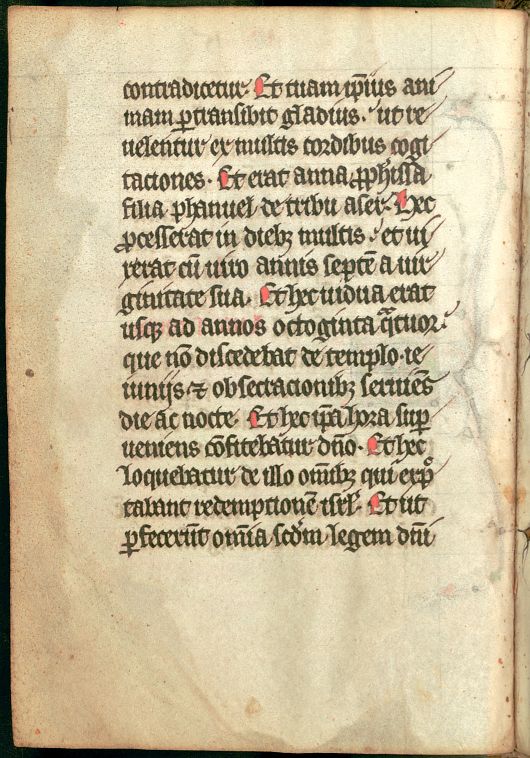 contradicetur. Et tuam ip̄ius ani
mam ꝑtransibit gladius. ut re
uelentur ex multis cordibus cogi
taciones. Et erat anna ꝓph̄issa
filia phanuel de tribu aser. Hec
ꝓcesserat in diebꝫ multis. et ui
xerat cū uiro annis septē a uir
ginitate sua. Et hec uidua erat
usqꝫ ad annos octoginta qͣtuor.
que nō discedebat de templo. ie
iunijs ⁊ obsecracionibꝫ seruiēs
die ac nocte. Et hec ip̄a hora suꝑ
ueniens cōfitebatur dn̄o. Et hec
loquebatur de illo om̄ibꝫ qui exp̄
ctabant redemptionē isrl̄. Et ut
ꝑfecerūt om̄ia scd̄m legem dn̄i